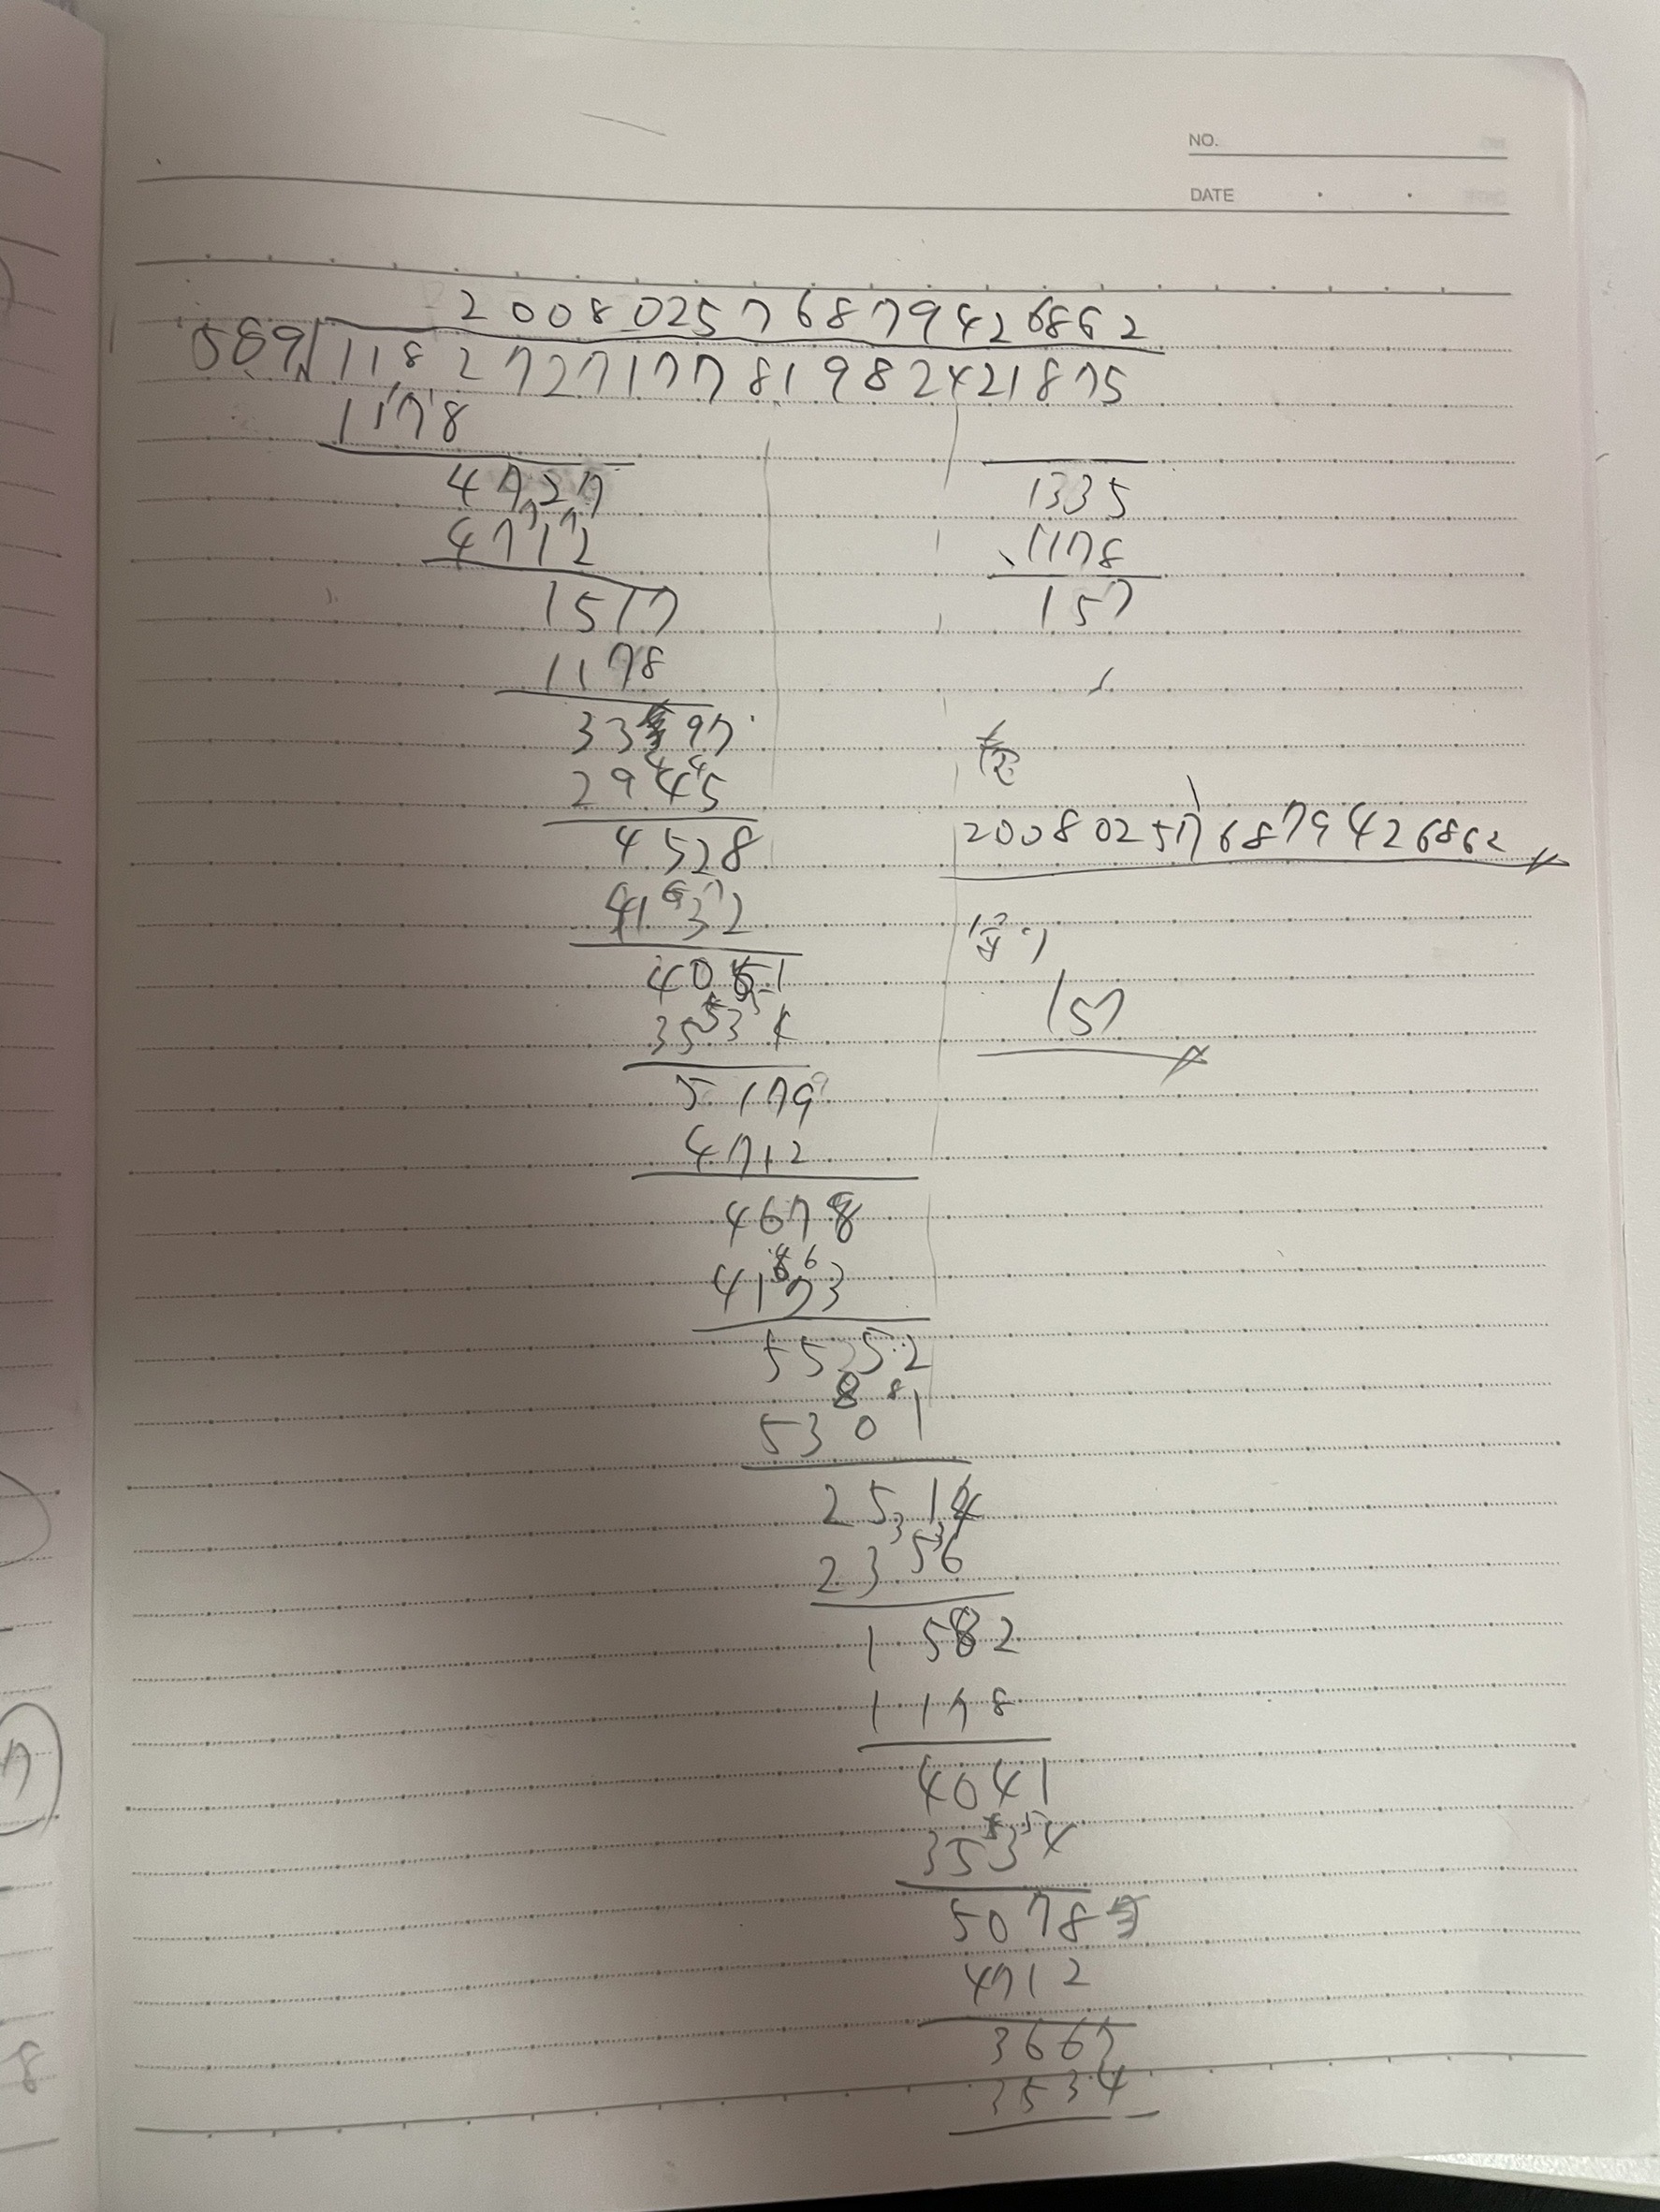 NO.
DATE
200802576879426862
589 118272717781982421875
1178
4727
4712
1517
1178
3397
2945
4528
4132
4051
3534
5179
4712
4678
4173
5552
5301
2514
2356
1582
1178
4041
3534
5078
4712
3667
3534
1335
1178
157
200802576879426862
157
7
8